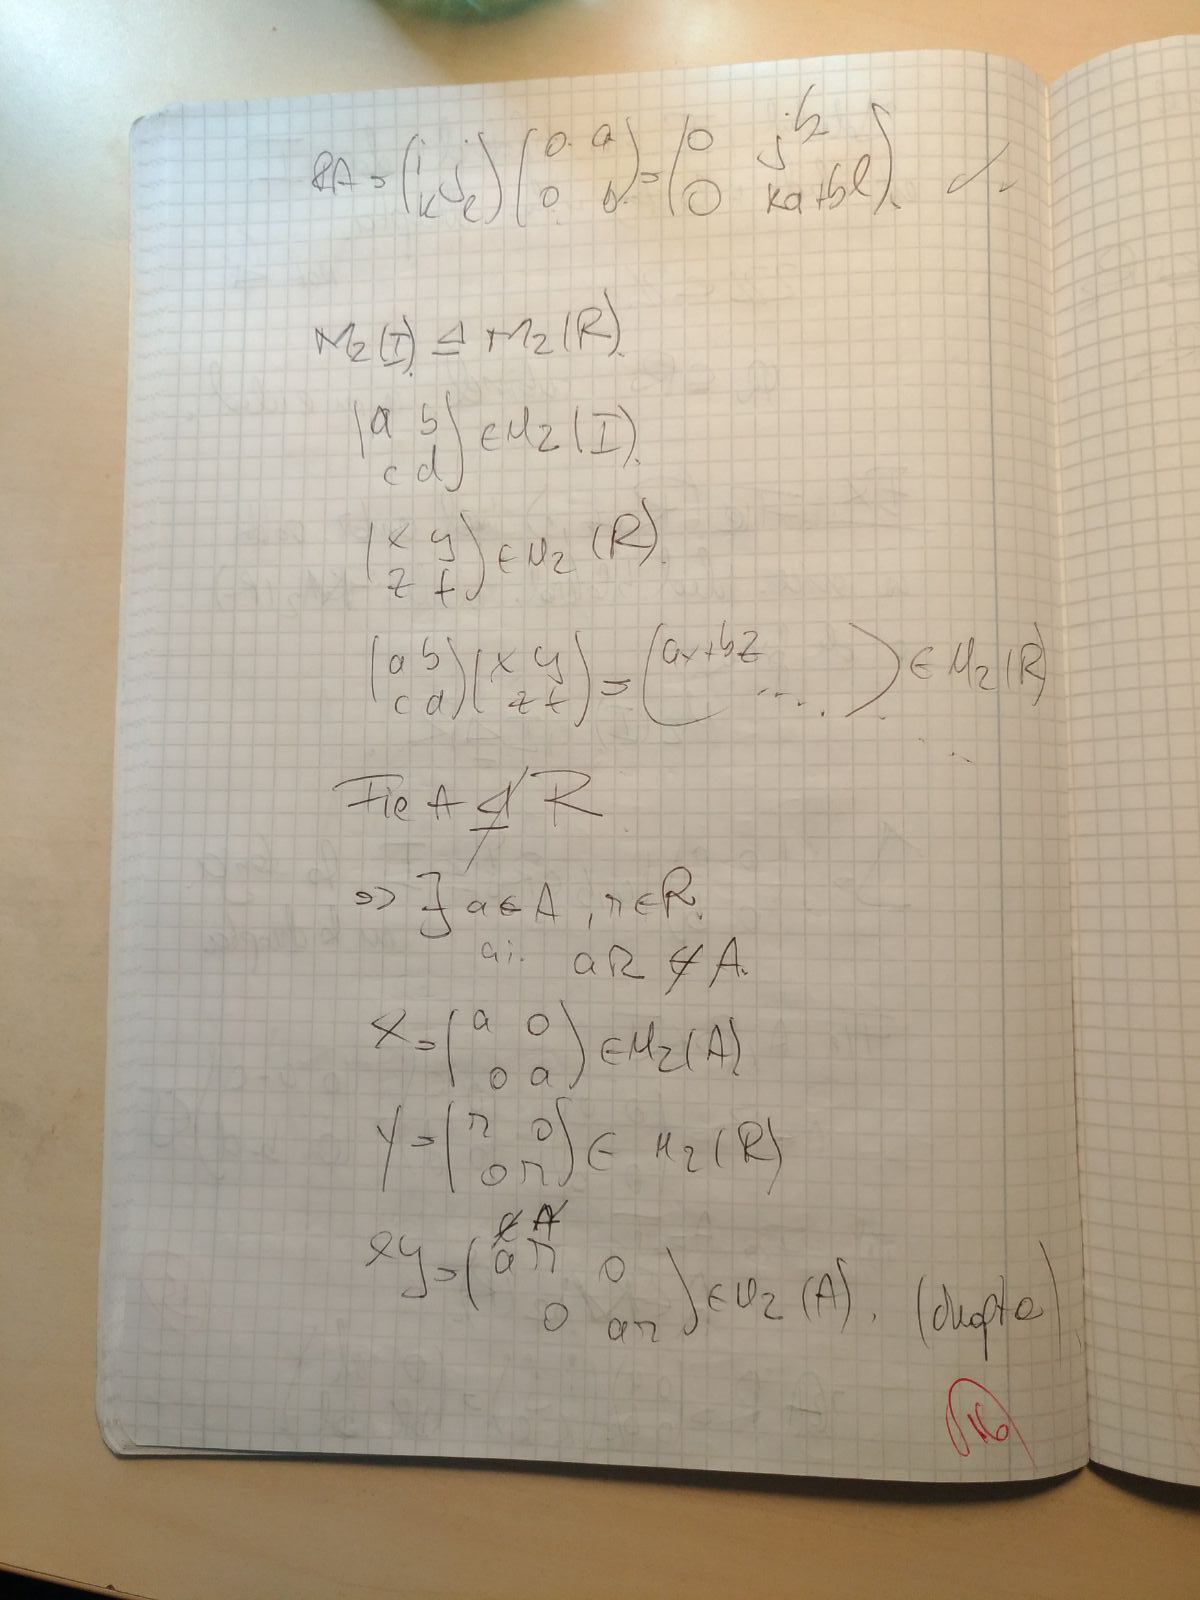 RA = (i j k l) (0 a 0 b) = (0 jb 0 ka+bl).
M2(I) ⊴ M2(R).
(a b c d) ∈ M2(I).
(x y z t) ∈ M2(R).
(a b c d)(x y z t) = (ax+bz ....) ∈ M2(R)
Fie A ⋬ R
=> ∃ a ∈ A, r ∈ R.
aî. ar ∉ A.
X = (a 0 0 a) ∈ M2(A)
Y = (r 0 0 r) ∈ M2(R)
∉ A
XY = (ar 0 0 ar) ∈ M2(A).
16